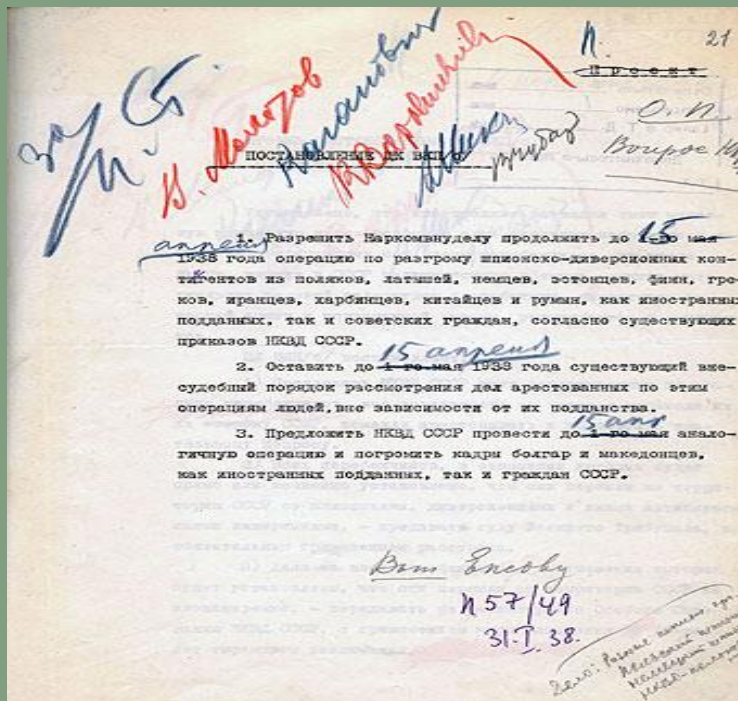 П. 21
Проект
за
И. Ст.
В. Молотов
Каганович
К Ворошилов
А Мик
В Чубар
О.П.
Вопрос НК
ПОСТАНОВЛЕНИЕ ЦК ВКП/б/
1. Разрешить Наркомвнуделу продолжить до 1-го мая 15
апреля
1938 года операцию по разгрому шпионско-диверсионных кон-
тигентов из поляков, латышей, немцев, эстонцев, финн, гре-
ков, иранцев, харбинцев, китайцев и румын, как иностранных
подданных, так и советских граждан, согласно существующих
приказов НКВД СССР.
15 апреля
2. Оставить до 1-го мая 1938 года существующий вне-
судебный порядок рассмотрения дел арестованных по этим
операциям людей, вне зависимости от их подданства.
15 апр
3. Предложить НКВД СССР провести до 1-го мая анало-
гичную операцию и погромить кадры болгар и македонцев,
как иностранных подданных, так и граждан СССР.
Вып Ежову
П 57/49
31.I.38.
Дело: